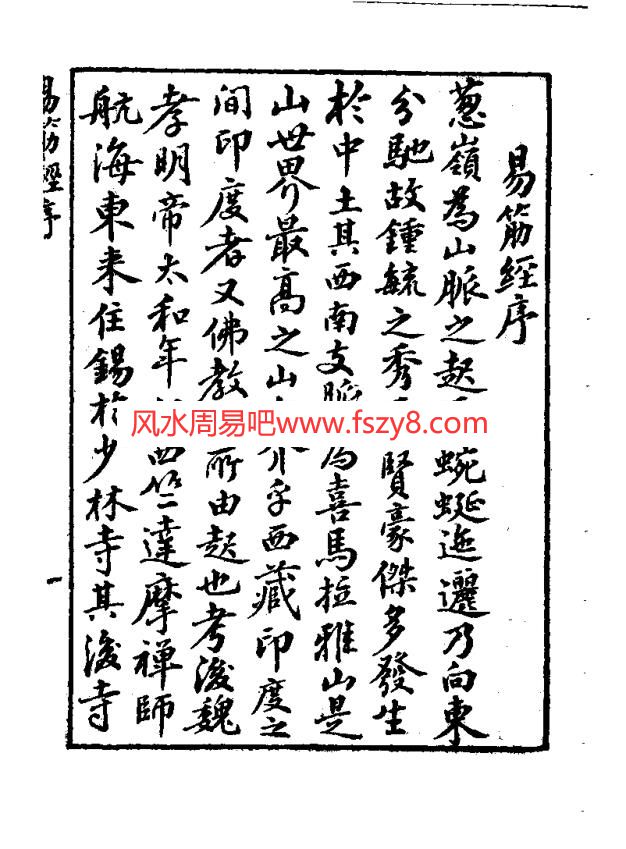 易筋經序
葱嶺為山脈之起 蜿蜒迤邐乃向東
分馳故鍾毓之秀 賢豪傑多發生
於中土其西南支脈為喜馬拉雅山是
山世界最高之山 介乎西藏印度之
间印度者又佛教所由起也考後魏
孝明帝太和年 西竺達摩禅師
航海東来住錫於少林寺其後寺
易筋經序
一
风水周易吧www.fszy8.com